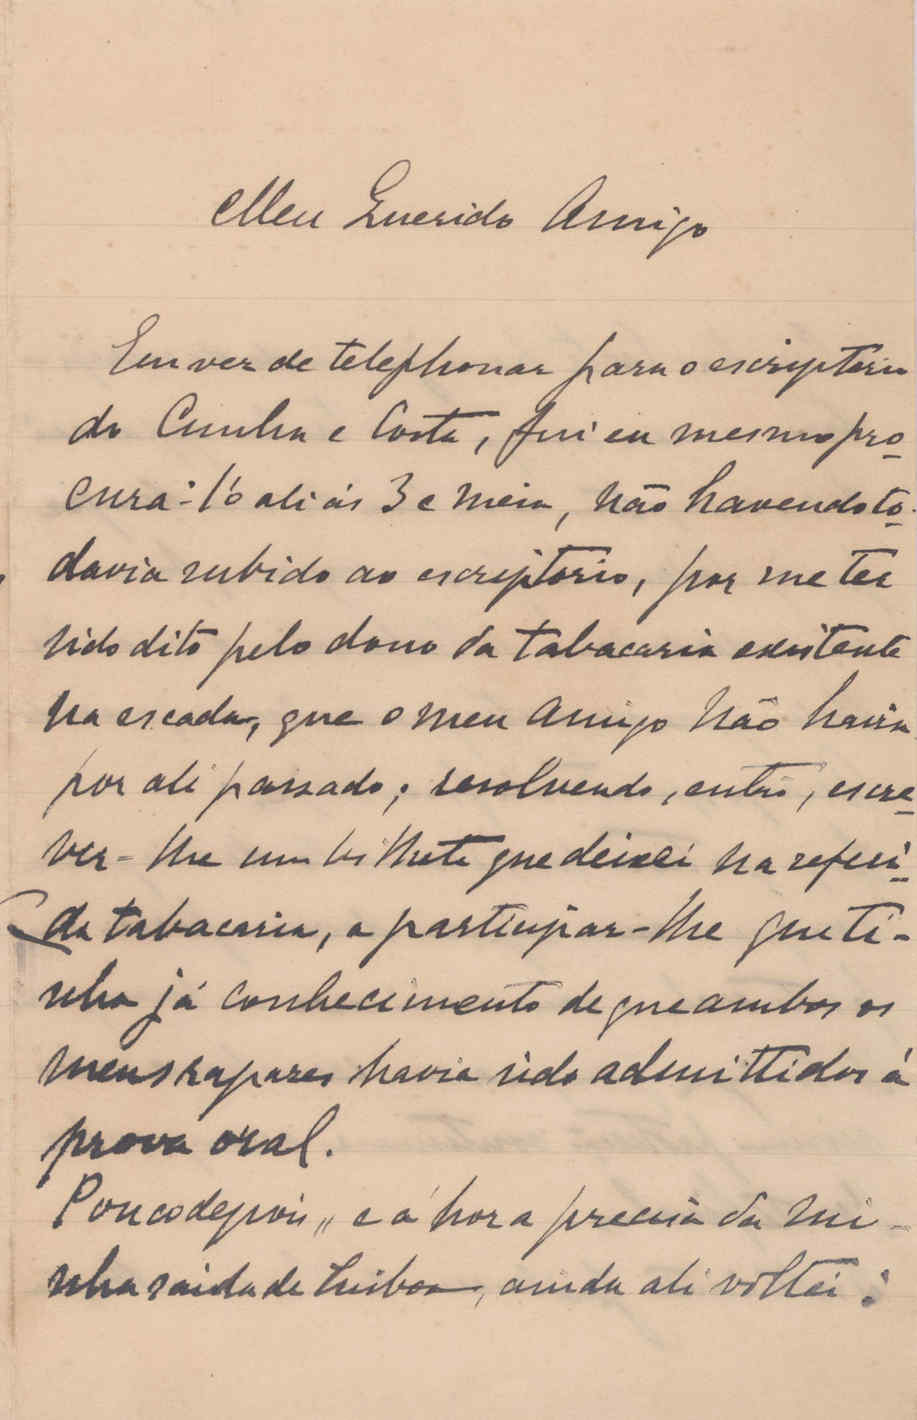 Meu Querido Amigo
Em vez de telephonar para o escriptorio
do Cunha e Costa, fui eu mesmo pro-
cura-l'o ali ás 3 e meia, não havendo to-
davia subido ao escriptorio, por me ter
sido dito pelo dono da tabacaria existente
na escada, que o meu Amigo não havia
por ali passado; resolvendo, então, escre-
ver-lhe um bilhete que deixei na referi-
da tabacaria, a participar-lhe que ti-
nha já conhecimento de que ambos os
meus rapazes havia sido admittidos á
prova oral.
Pouco depois, e á hora precisa da mi-
nha saida de Lisboa, ainda ali voltei;